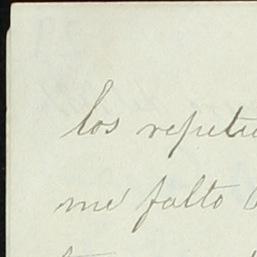 los repeti
me falto